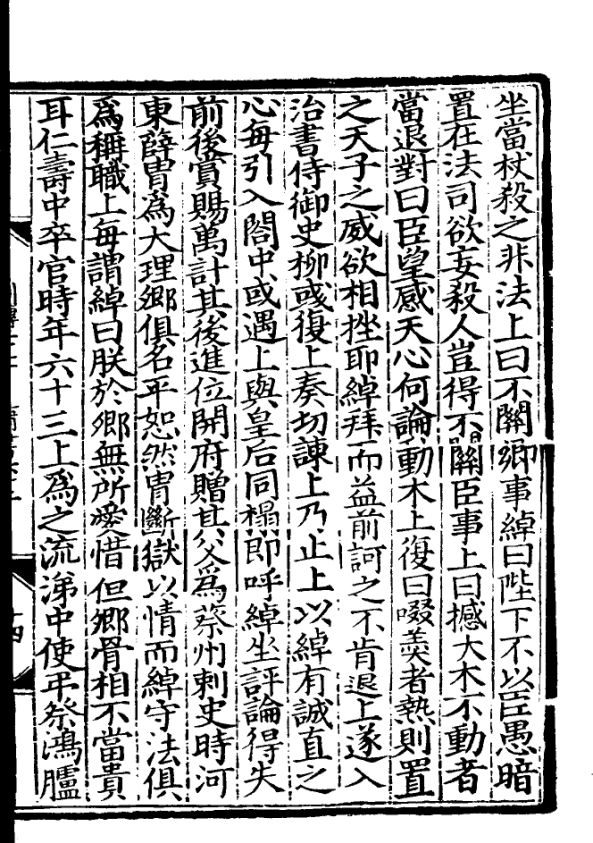 坐當杖殺之非法上曰不關卿事綽曰陛下不以臣愚暗
置在法司欲妄殺人豈得不關臣事上曰撼大木不動者
當退對曰臣望感天心何論動木上復曰啜羹者熱則置
之天子之威欲相挫耶綽拜而益前訶之不肯退上遂入
治書侍御史柳彧復上奏切諫上乃止上以綽有誠直之
心每引入閤中或遇上與皇后同榻即呼綽坐評論得失
前後賞賜萬計其後進位開府贈其父為蔡州刺史時河
東薛胄為大理卿俱名平恕然胄斷獄以情而綽守法俱
為稱職上每謂綽曰朕於卿無所愛惜但卿骨相不當貴
耳仁壽中卒官時年六十三上為之流涕中使弔祭鴻臚